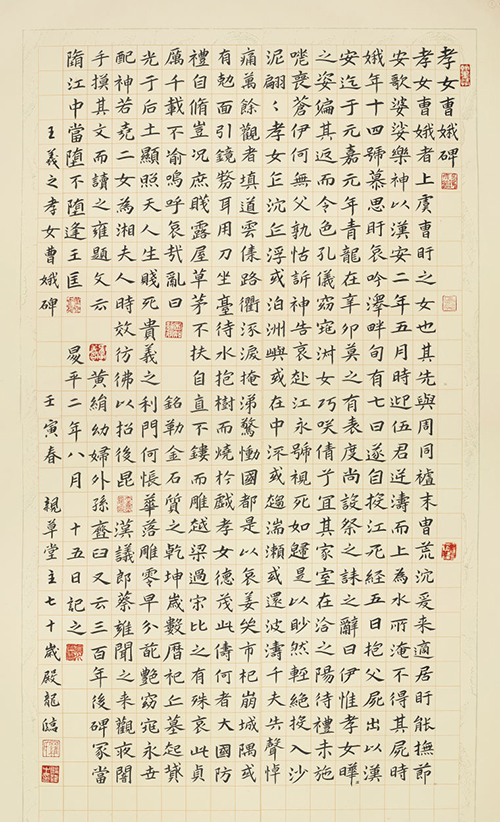 孝女曹娥碑
孝女曹娥者上虞曹盱之女也其先與周同櫨末胄荒沉爰来適居盱能撫節
安歌婆娑樂神以漢安二年五月時迎伍君逆濤而上為水所淹不得其屍時
娥年十四號慕思盱哀吟澤畔旬有七日遂自投江死経五日抱父屍出以漢
安迄于元嘉元年青龍在辛卯莫之有表度尚設祭之誄之辭曰伊惟孝女曄
之姿偏其返而令色孔儀窈窕淑女巧咲倩兮宜其家室在洽之陽待禮未施
嗟喪蒼伊何無父孰怙訴神告哀赴江永號視死如歸是以眇然輕絶投入沙
泥翩〻孝女乍沉乍浮或泊洲嶼或在中流或趨湍瀨或還波濤千夫失聲悼
痛萬餘觀者填道雲集路衢泝淚掩涕驚慟國都是以哀姜哭市杞崩城隅或
有尅面引鏡剺耳用刀坐臺待水抱樹而燒於戲孝女德茂此儔何者大國防
禮自脩豈况庶賤露屋草茅不扶自直不鏤而雕越梁過宋比之有殊哀此貞
厲千載不渝嗚呼哀哉亂曰 銘勒金石質之乾坤歲數暦祀丘墓起墳
光于后土顯照天人生賤死貴義之利門何悵華落雕零早分葩艷窈窕永世
配神若堯二女為湘夫人時效彷彿以招後昆 漢議郎蔡雍聞之来觀夜闇
手摸其文而讀之雍題文云 黄絹幼婦外孫韲臼又云三百年後碑冢當
隋江中當堕不堕逢王叵 昪平二年八月 十五日記之
王義之孝女曹娥碑 壬寅春 楓草堂主七十歲殿龍臨